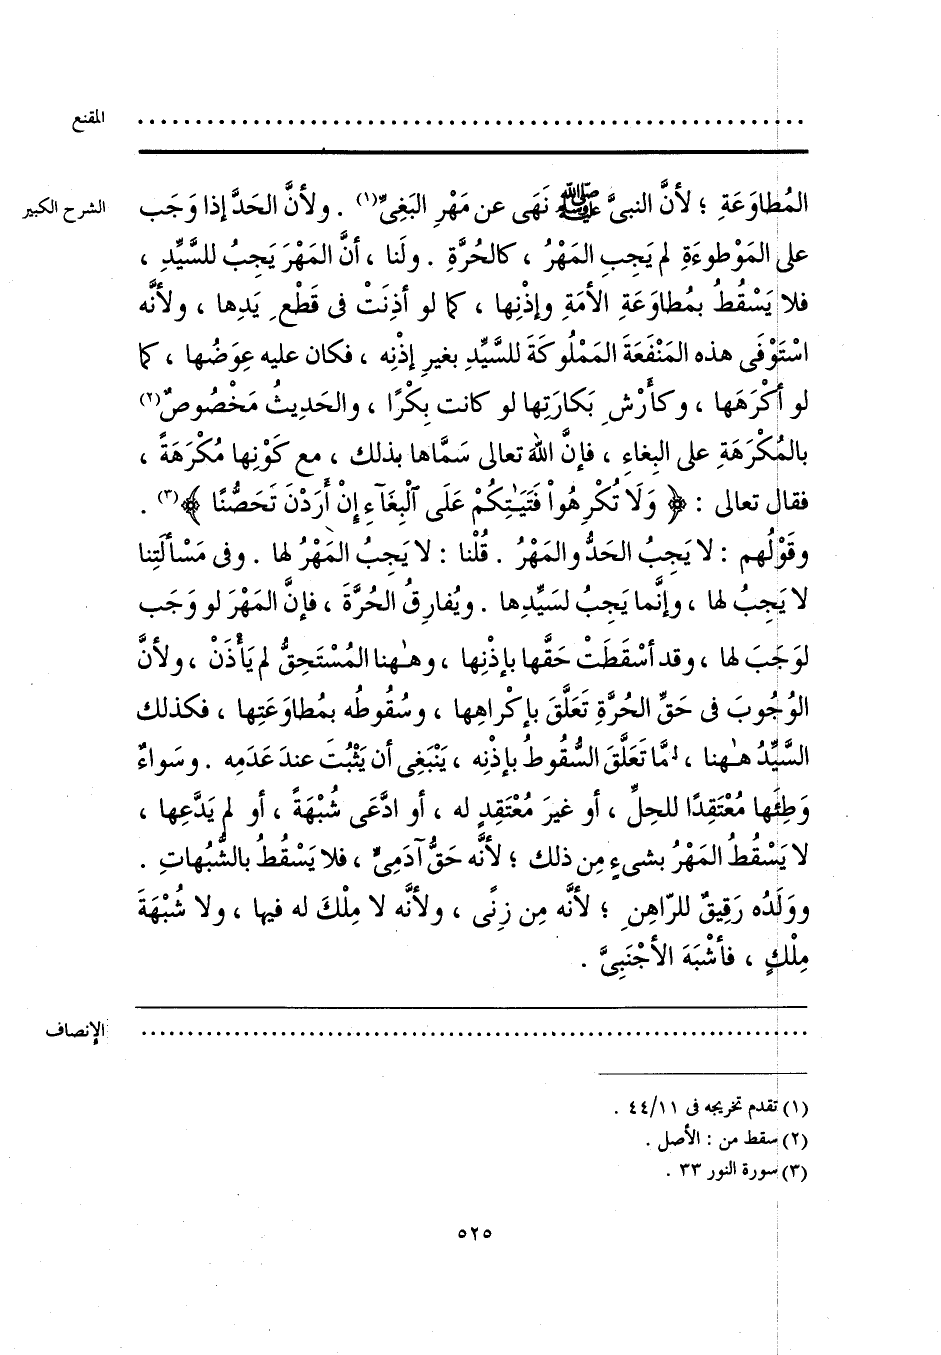 المقنع ........................................................
الشرح الكبير
المُطاوَعَةِ ؛ لأنَّ النبىَّ ﷺ نَهَى عن مَهْرِ البَغِىِّ(١) . ولأنَّ الحَدَّ إذا وَجَب
على المَوْطوءَةِ لم يَجِبِ المَهْرُ ، كالحُرَّةِ . ولَنا ، أنَّ المَهْرَ يَجِبُ للسَّيِّدِ ،
فلا يَسْقُطُ بمُطاوَعَةِ الأمَةِ وإذْنِها ، كما لو أذِنَتْ فى قَطْعِ يَدِها ، ولأنَّه
اسْتَوْفَى هذه المَنْفَعَةَ المَمْلُوكَةَ للسَّيِّدِ بغيرِ إذْنِه ، فكان عليه عِوَضُها ، كما
لو أكْرَهَها ، وكأَرْشِ بَكارَتِها لو كانت بِكْرًا ، والحَدِيثُ مَخْصُوصٌ(٢)
بالمُكْرَهَةِ على البِغاءِ ، فإنَّ اللهَ تعالى سَمَّاها بذلك ، مع كَوْنِها مُكْرَهَةً ،
فقال تعالى : ﴿ وَلَا تُكْرِهُواْ فَتَيَٰتِكُمْ عَلَى ٱلْبِغَآءِ إِنْ أَرَدْنَ تَحَصُّنًا ﴾(٣) .
وقَوْلُهم : لا يَجِبُ الحَدُّ والمَهْرُ . قُلْنا : لا يَجِبُ المَهْرُ لها . وفى مَسْألَتِنا
لا يَجِبُ لها ، وإنَّما يَجِبُ لسَيِّدِها . ويُفارِقُ الحُرَّةَ ، فإنَّ المَهْرَ لو وَجَب
لوَجَبَ لها ، وقد أسْقَطَتْ حَقَّها بإذْنِها ، وهٰهنا المُسْتَحِقُّ لم يَأْذَنْ ، ولأنَّ
الوُجُوبَ فى حَقِّ الحُرَّةِ تَعَلَّقَ بإكْراهِها ، وسُقُوطُه بمُطاوَعَتِها ، فكذلك
السَّيِّدُ هٰهنا ، لمَّا تَعَلَّقَ السُّقُوطُ بإذْنِه ، يَنْبَغِى أن يَثْبُتَ عندَ عَدَمِه . وسَواءٌ
وَطِئَها مُعْتَقِدًا للحِلِّ ، أو غيرَ مُعْتَقِدٍ له ، أو ادَّعَى شُبْهَةً ، أو لم يَدَّعِها ،
لا يَسْقُطُ المَهْرُ بشىءٍ مِن ذلك ؛ لأنَّه حَقُّ آدَمِىٍّ ، فلا يَسْقُطُ بالشُّبُهاتِ .
ووَلَدُه رَقِيقٌ للرّاهِنِ ؛ لأنَّه مِن زِنًى ، ولأنَّه لا مِلْكَ له فيها ، ولا شُبْهَةَ
مِلْكٍ ، فأشْبَهَ الأجْنَبِىَّ .
الإنصاف ........................................................
(١) تقدم تخريجه فى ٤٤/١١ .
(٢) سقط من : الأصل .
(٣) سورة النور ٣٣ .
٥٢٥